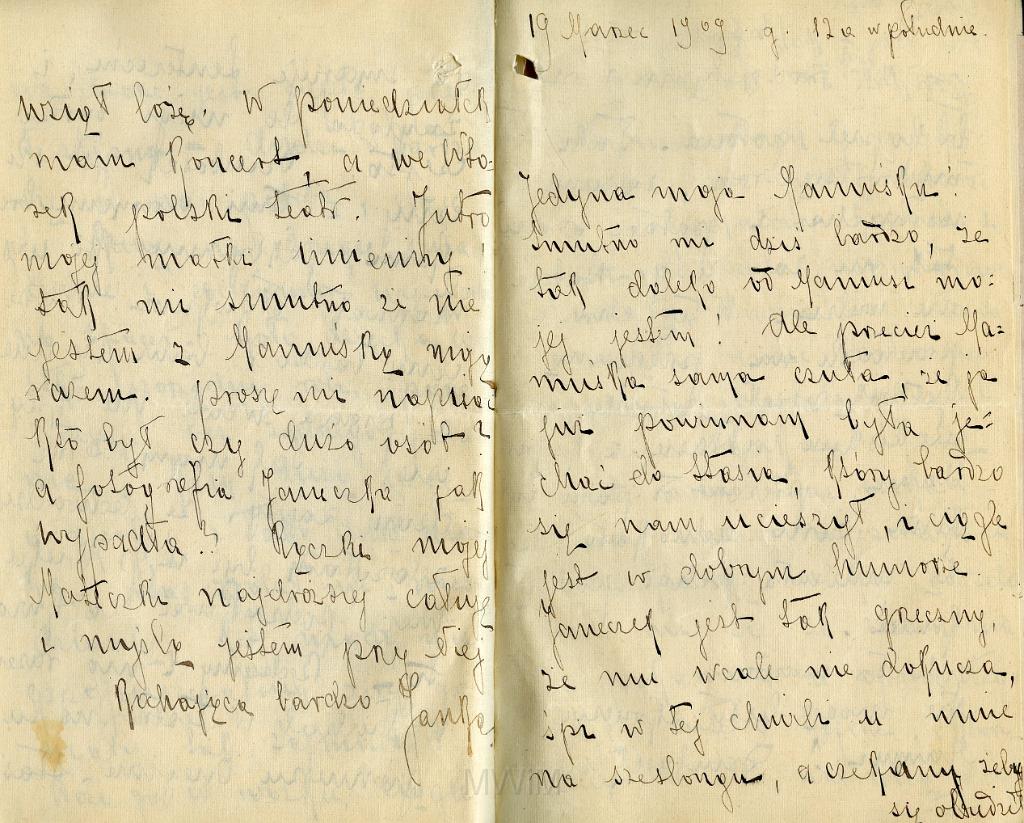 19 Marzec 1909 g. 12a w południe.
Jedyna moja Mamuśku
smutno mi dziś bardzo, że
tak daleko od Mamusi mo=
jej jestem! Ale przecież Ma=
muśka sama czuła, że ja
już powinnam była je=
chać do Stasia, który bardzo
się nam ucieszył, i ciągle
jest w dobrym humorze.
Janeczek jest tak grzeczny,
że mu wcale nie dokucza,
śpi w tej chwili u mnie
na szeslongu, a czekamy żeby
się obudził
wziął lożę. W poniedziałek
mam Koncert, a we Wto=
rek polski teatr. Jutro
mojej matki imieniny
tak mi smutno że nie
jestem z Mamuśką moją
razem. Proszę mi napisać
kto był czy dużo osób?
a fotografia Janeczka jak
wypadła? Rączki mojej
Mateczki najdroższej całuję
i myślą jestem przy Niej
Kochająca bardzo Janka
MWiM